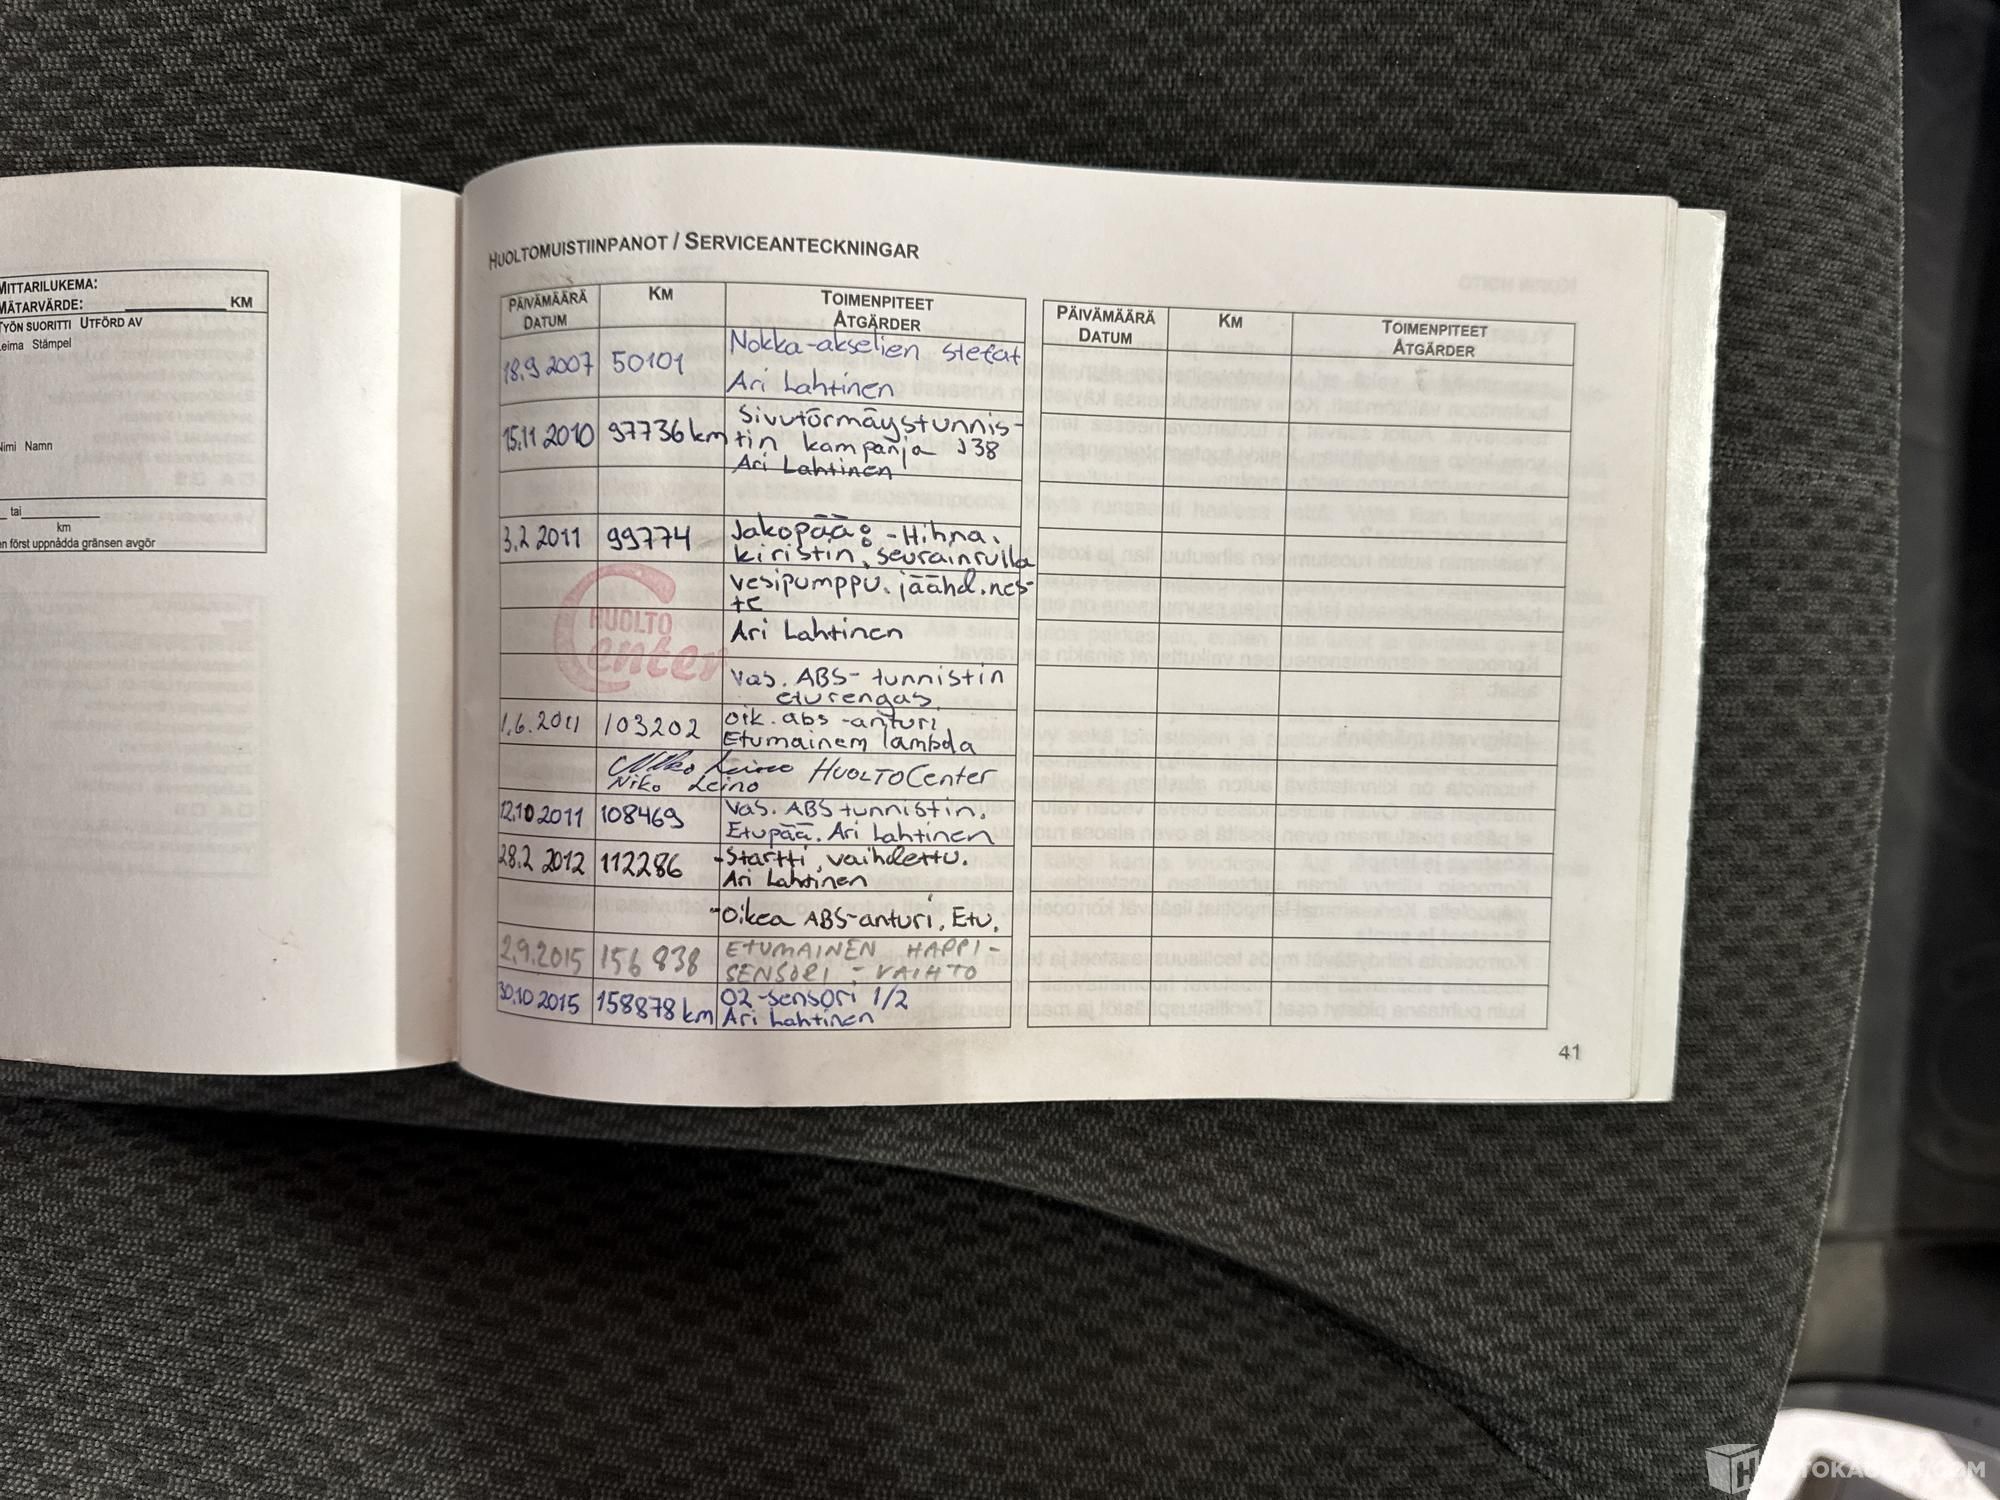 MITTARILUKEMA:
MÄTARVÄRDE: KM
TYÖN SUORITTI UTFÖRD AV
Leima Stämpel
Nimi Namn
tai
km
en först uppnådda gränsen avgör
HUOLTOMUISTIINPANOT / SERVICEANTECKNINGAR
PÄIVÄMÄÄRÄ KM TOIMENPITEET
DATUM ÅTGÄRDER
Nokka-akselien
18.9 2007 50101
Ari Lahtinen
Sivutörmäystunnis-
15.11 2010 97736 km tin kampanja J38
Ari Lahtinen
3.2 2011 99774 Jakopää: - Hihna.
kiristin, seurainrulla
vesipumppu. jäähd.nes-
te
Ari Lahtinen
HUOLTO
Center
Vas. ABS- tunnistin
eturengas.
1.6.2011 103202 oik. abs -anturi
Etumainem lambda
Niko Leino HUOLTOCenter
Niko Leino
12.10 2011 108469 Vas. ABS tunnistin.
Etupää. Ari Lahtinen
28.2 2012 112286 -Startti vaihdettu.
Ari Lahtinen
-Oikea ABS-anturi. Etu.
2.9.2015 156 838 ETUMAINEN HAPPI-
SENSORI - VAIHTO
30.10 2015 158878 km O2-sensori 1/2
Ari Lahtinen
PÄIVÄMÄÄRÄ KM TOIMENPITEET
DATUM ÅTGÄRDER
41